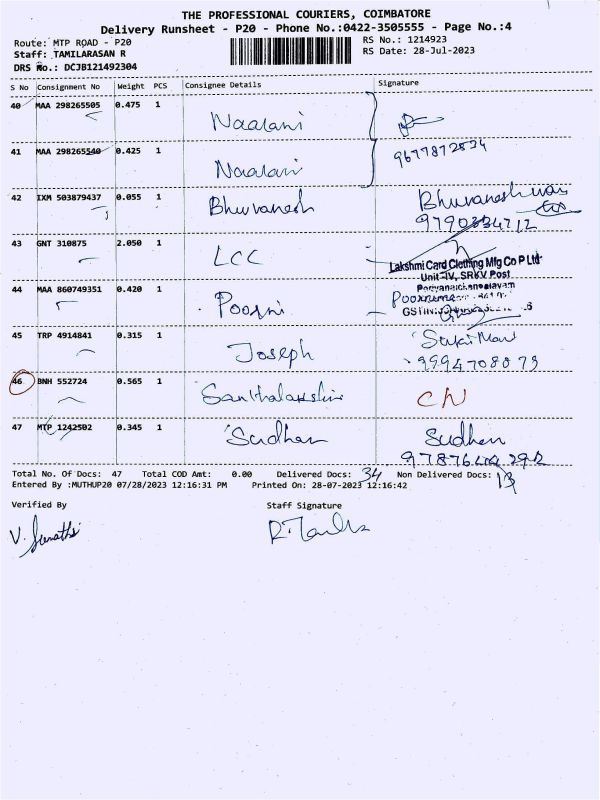 THE PROFESSIONAL COURIERS, COIMBATORE
Delivery Runsheet - P20 - Phone No.:0422-3505555 - Page No.:4
Route: MTP ROAD - P20
RS No.: 1214923
Staff: TAMILARASAN R
RS Date: 28-Jul-2023
DRS No.: DCJB121492304
S No Consignment No Weight PCS Consignee Details Signature
40 MAA 298265505 0.475 1
Naalani
41 MAA 298265540 0.425 1
Naalani
9677872834
42 IXM 503879437 0.055 1
Bhuvanesh Bhuvaneshwari
43 GNT 310875 2.050 1
LCC
Lakshmi Card Clothing Mfg Co P Ltd
Unit-IV, SRKV Post
44 MAA 860749351 0.420 1
Poorni
GSTIN:
45 TRP 4914841 0.315 1
Joseph
9994708079
46 BNH 552724 0.565 1
CN
47 MTP 1242502 0.345 1
Sudhan Sudhan
Total No. Of Docs: 47 Total COD Amt: 0.00 Delivered Docs: 34 Non Delivered Docs: 13
Entered By :MUTHUP20 07/28/2023 12:16:31 PM Printed On: 28-07-2023 12:16:42
Verified By Staff Signature